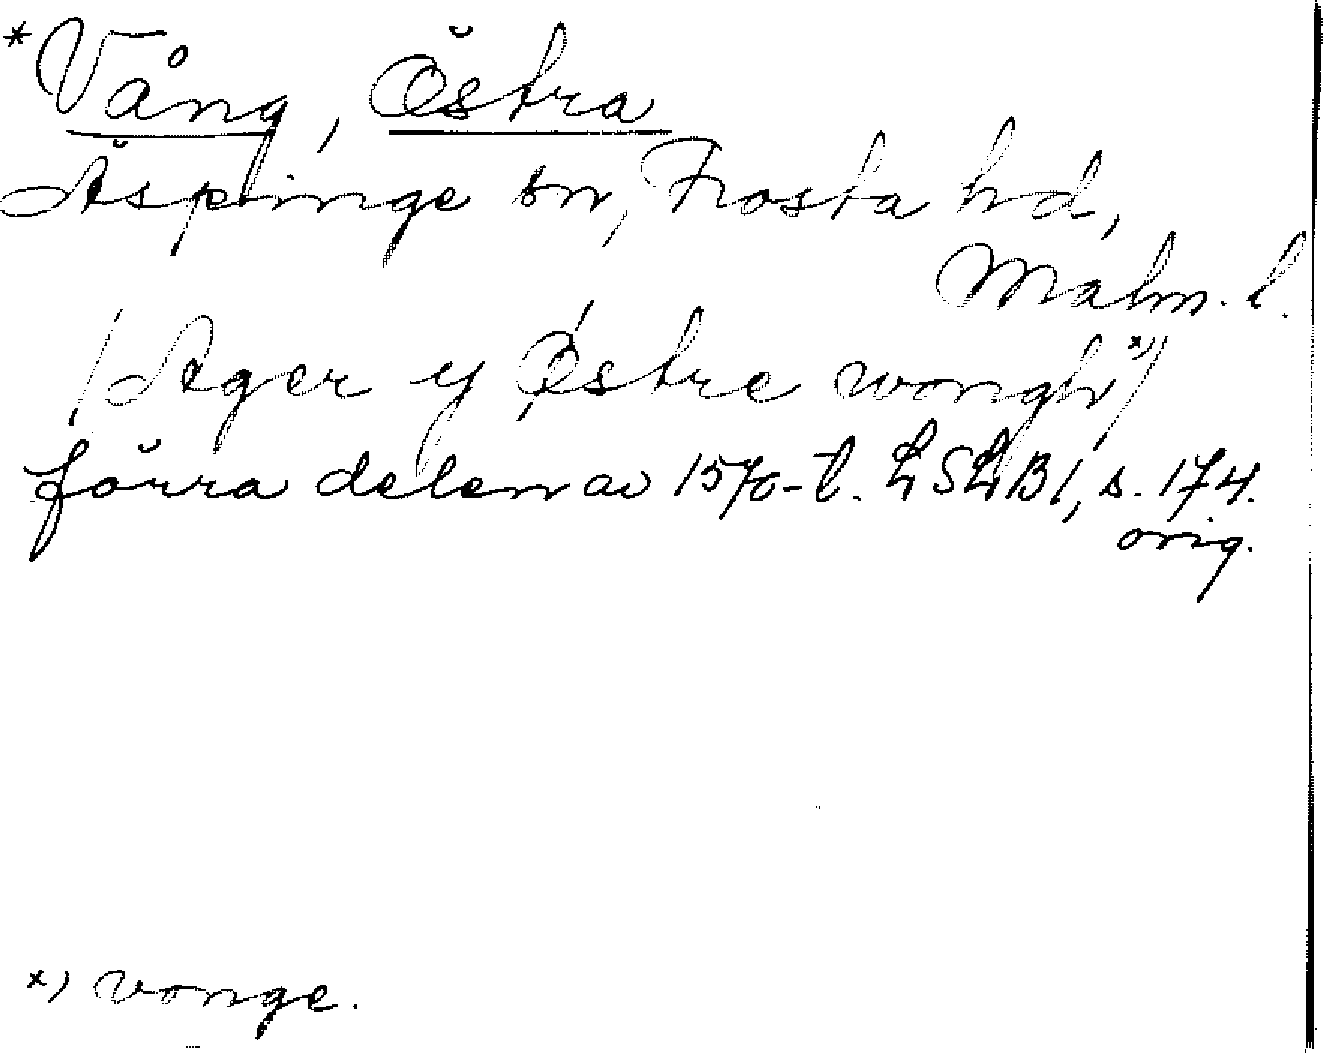 *Vång, Östra
Äspinge sn, Frosta hd,
Malm. l.
(Ager y Østre wongh x))
förra delen av 1570-t. LSLB1, s. 174.
orig.
x) vonge.